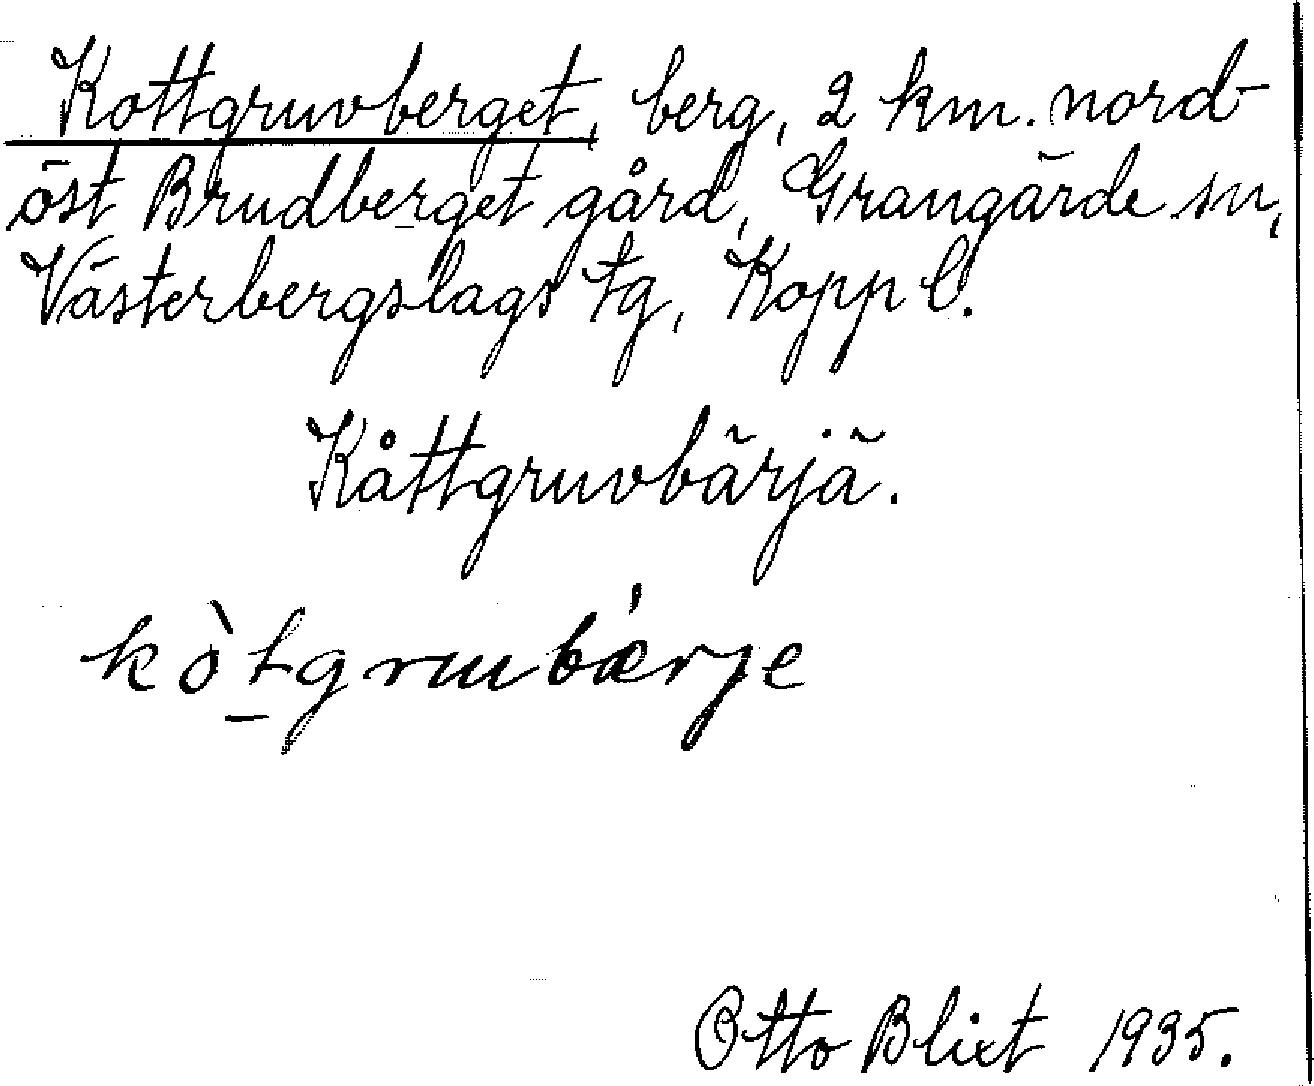 Kottgruvberget, berg, 2 km. nord-
öst Brudberget gård, Grangärde sn,
Västerbergslags tg, Kopp l.
Kåttgruvbärjä.
kòtgruubǽrje
Otto Blixt 1935.